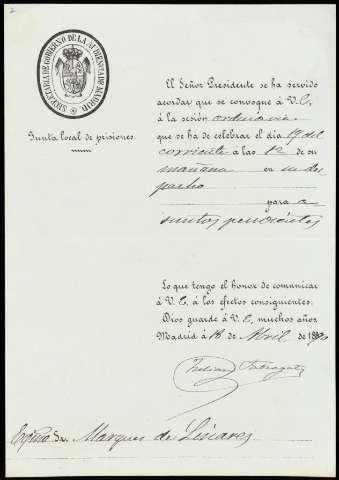 SECRETARIA DE GOBIERNO DE LA AUDIENCIA DE MADRID
Junta local de prisiones.
El Señor Presidente se ha servido
acordar que se convoque á V. E.
á la sesión ordinaria
que se ha de celebrar el dia 19 del
corriente á las 12 de su
mañana en su des
pacho
para a
suntos pendientes
Lo que tengo el honor de comunicar
á V. E. á los efectos consiguientes.
Dios guarde á V. E. muchos años.
Madrid á 18 de Abril de 18
Julian
Excmo Sr. Marques de Linares